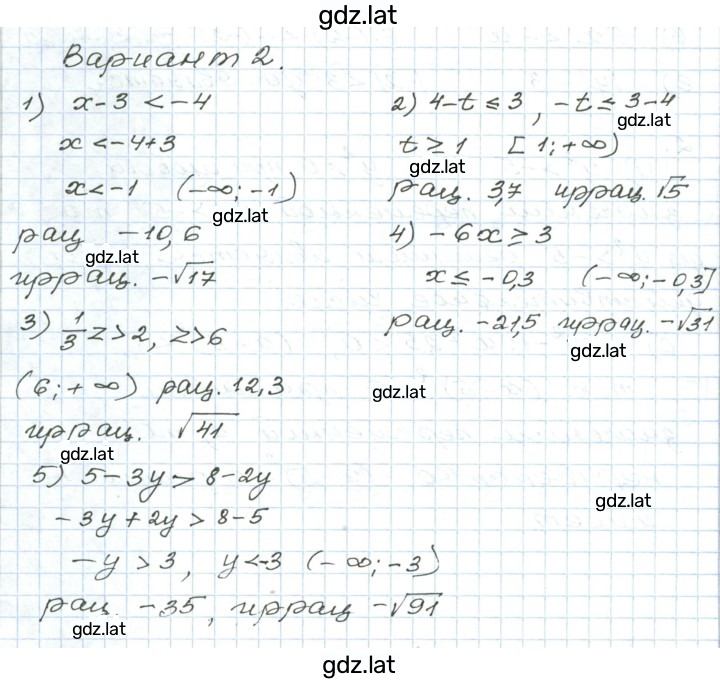 gdz.lat
Вариант 2.
1) x - 3 < -4
x < -4+3
x < -1 (-∞; -1)
gdz.lat
рац -10,6
gdz.lat
иррац. -√17
2) 4-t ≤ 3, -t ≤ 3-4
gdz.lat
t ≥ 1 [1; +∞)
gdz.lat
рац. 3,7 иррац. √5
3) 1/3 z > 2, z > 6
(6; +∞) рац. 12,3
иррац. √41
gdz.lat
4) -6x ≥ 3
x ≤ -0,3 (-∞; -0,3]
рац. -21,5 иррац. -√31
gdz.lat
gdz.lat
5) 5-3y > 8-2y
-3y + 2y > 8-5
-y > 3, y <-3 (-∞; -3)
рац. -35, иррац -√91
gdz.lat
gdz.lat
gdz.lat